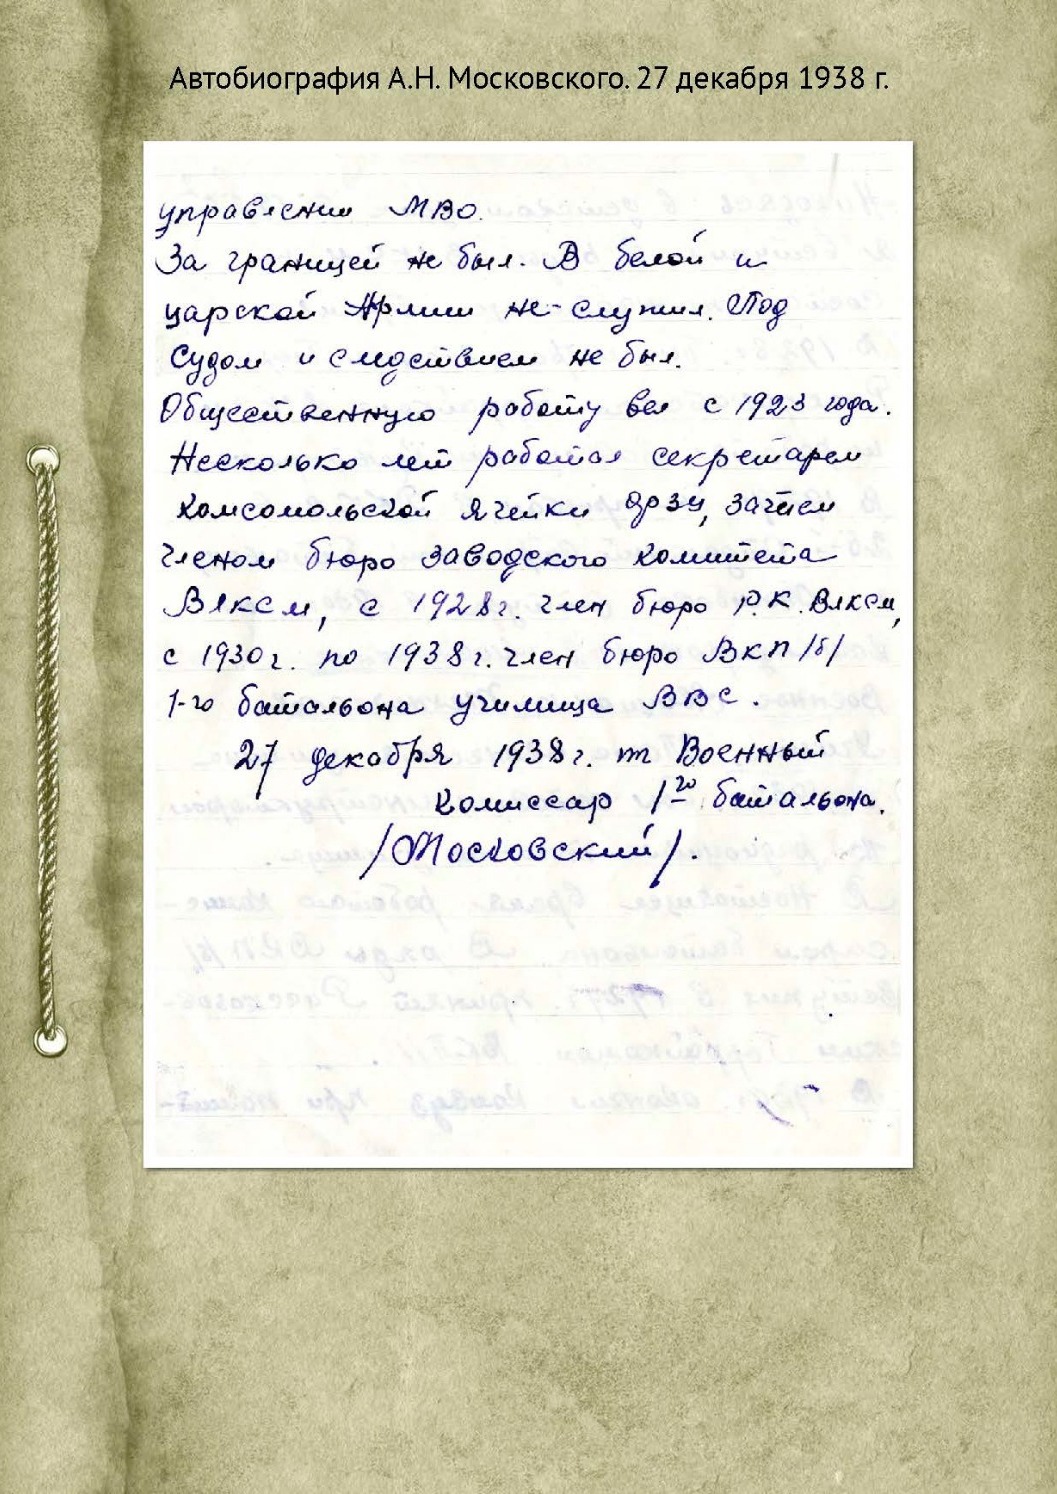 Автобиография А.Н. Московского. 27 декабря 1938 г.
управлении МВО.
За границей не был. В белой и
царской Армии не служил. Под
судом и следствием не был.
Общественную работу вел с 1923 года.
Несколько лет работал секретарем
комсомольской ячейки ФЗУ, затем
членом бюро заводского комитета
ВЛКСМ, с 1928 г. член бюро Р.К. ВЛКСМ,
с 1930 г. по 1938 г. член бюро ВКП/б/
1-го батальона училища ВВС.
27 декабря 1938 г. Военный
Комиссар 1го батальона.
/Московский/.